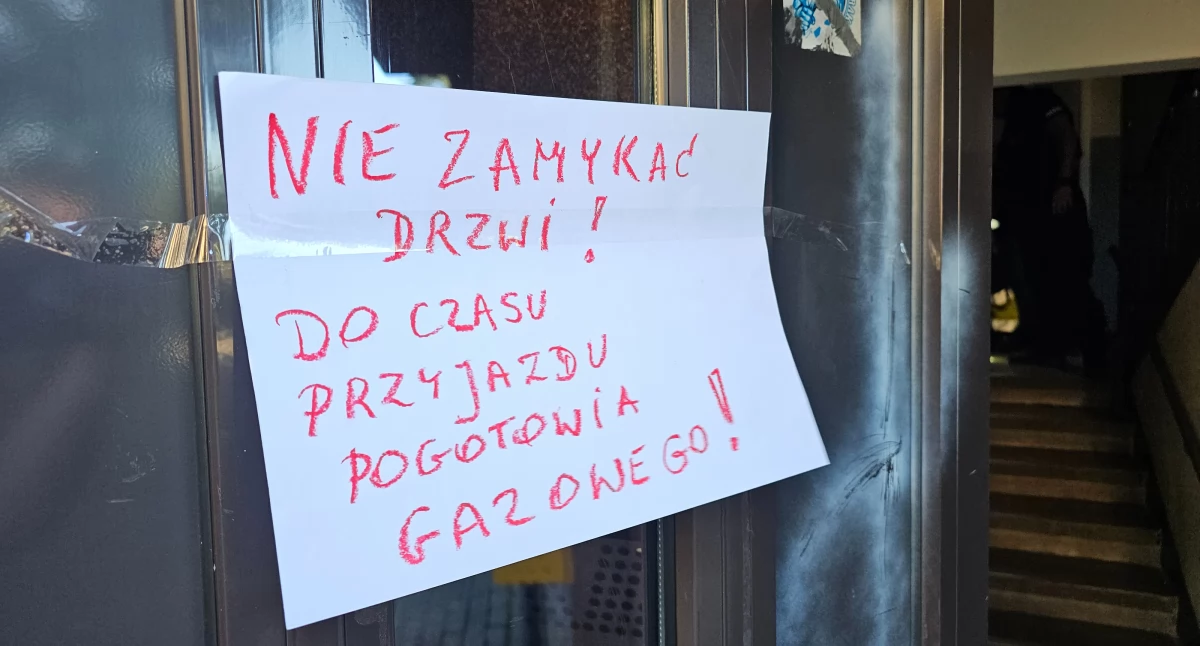 NIE ZAMYKAĆ
DRZWI!
DO CZASU
PRZYJAZDU
POGOTOWIA
GAZOWEGO!